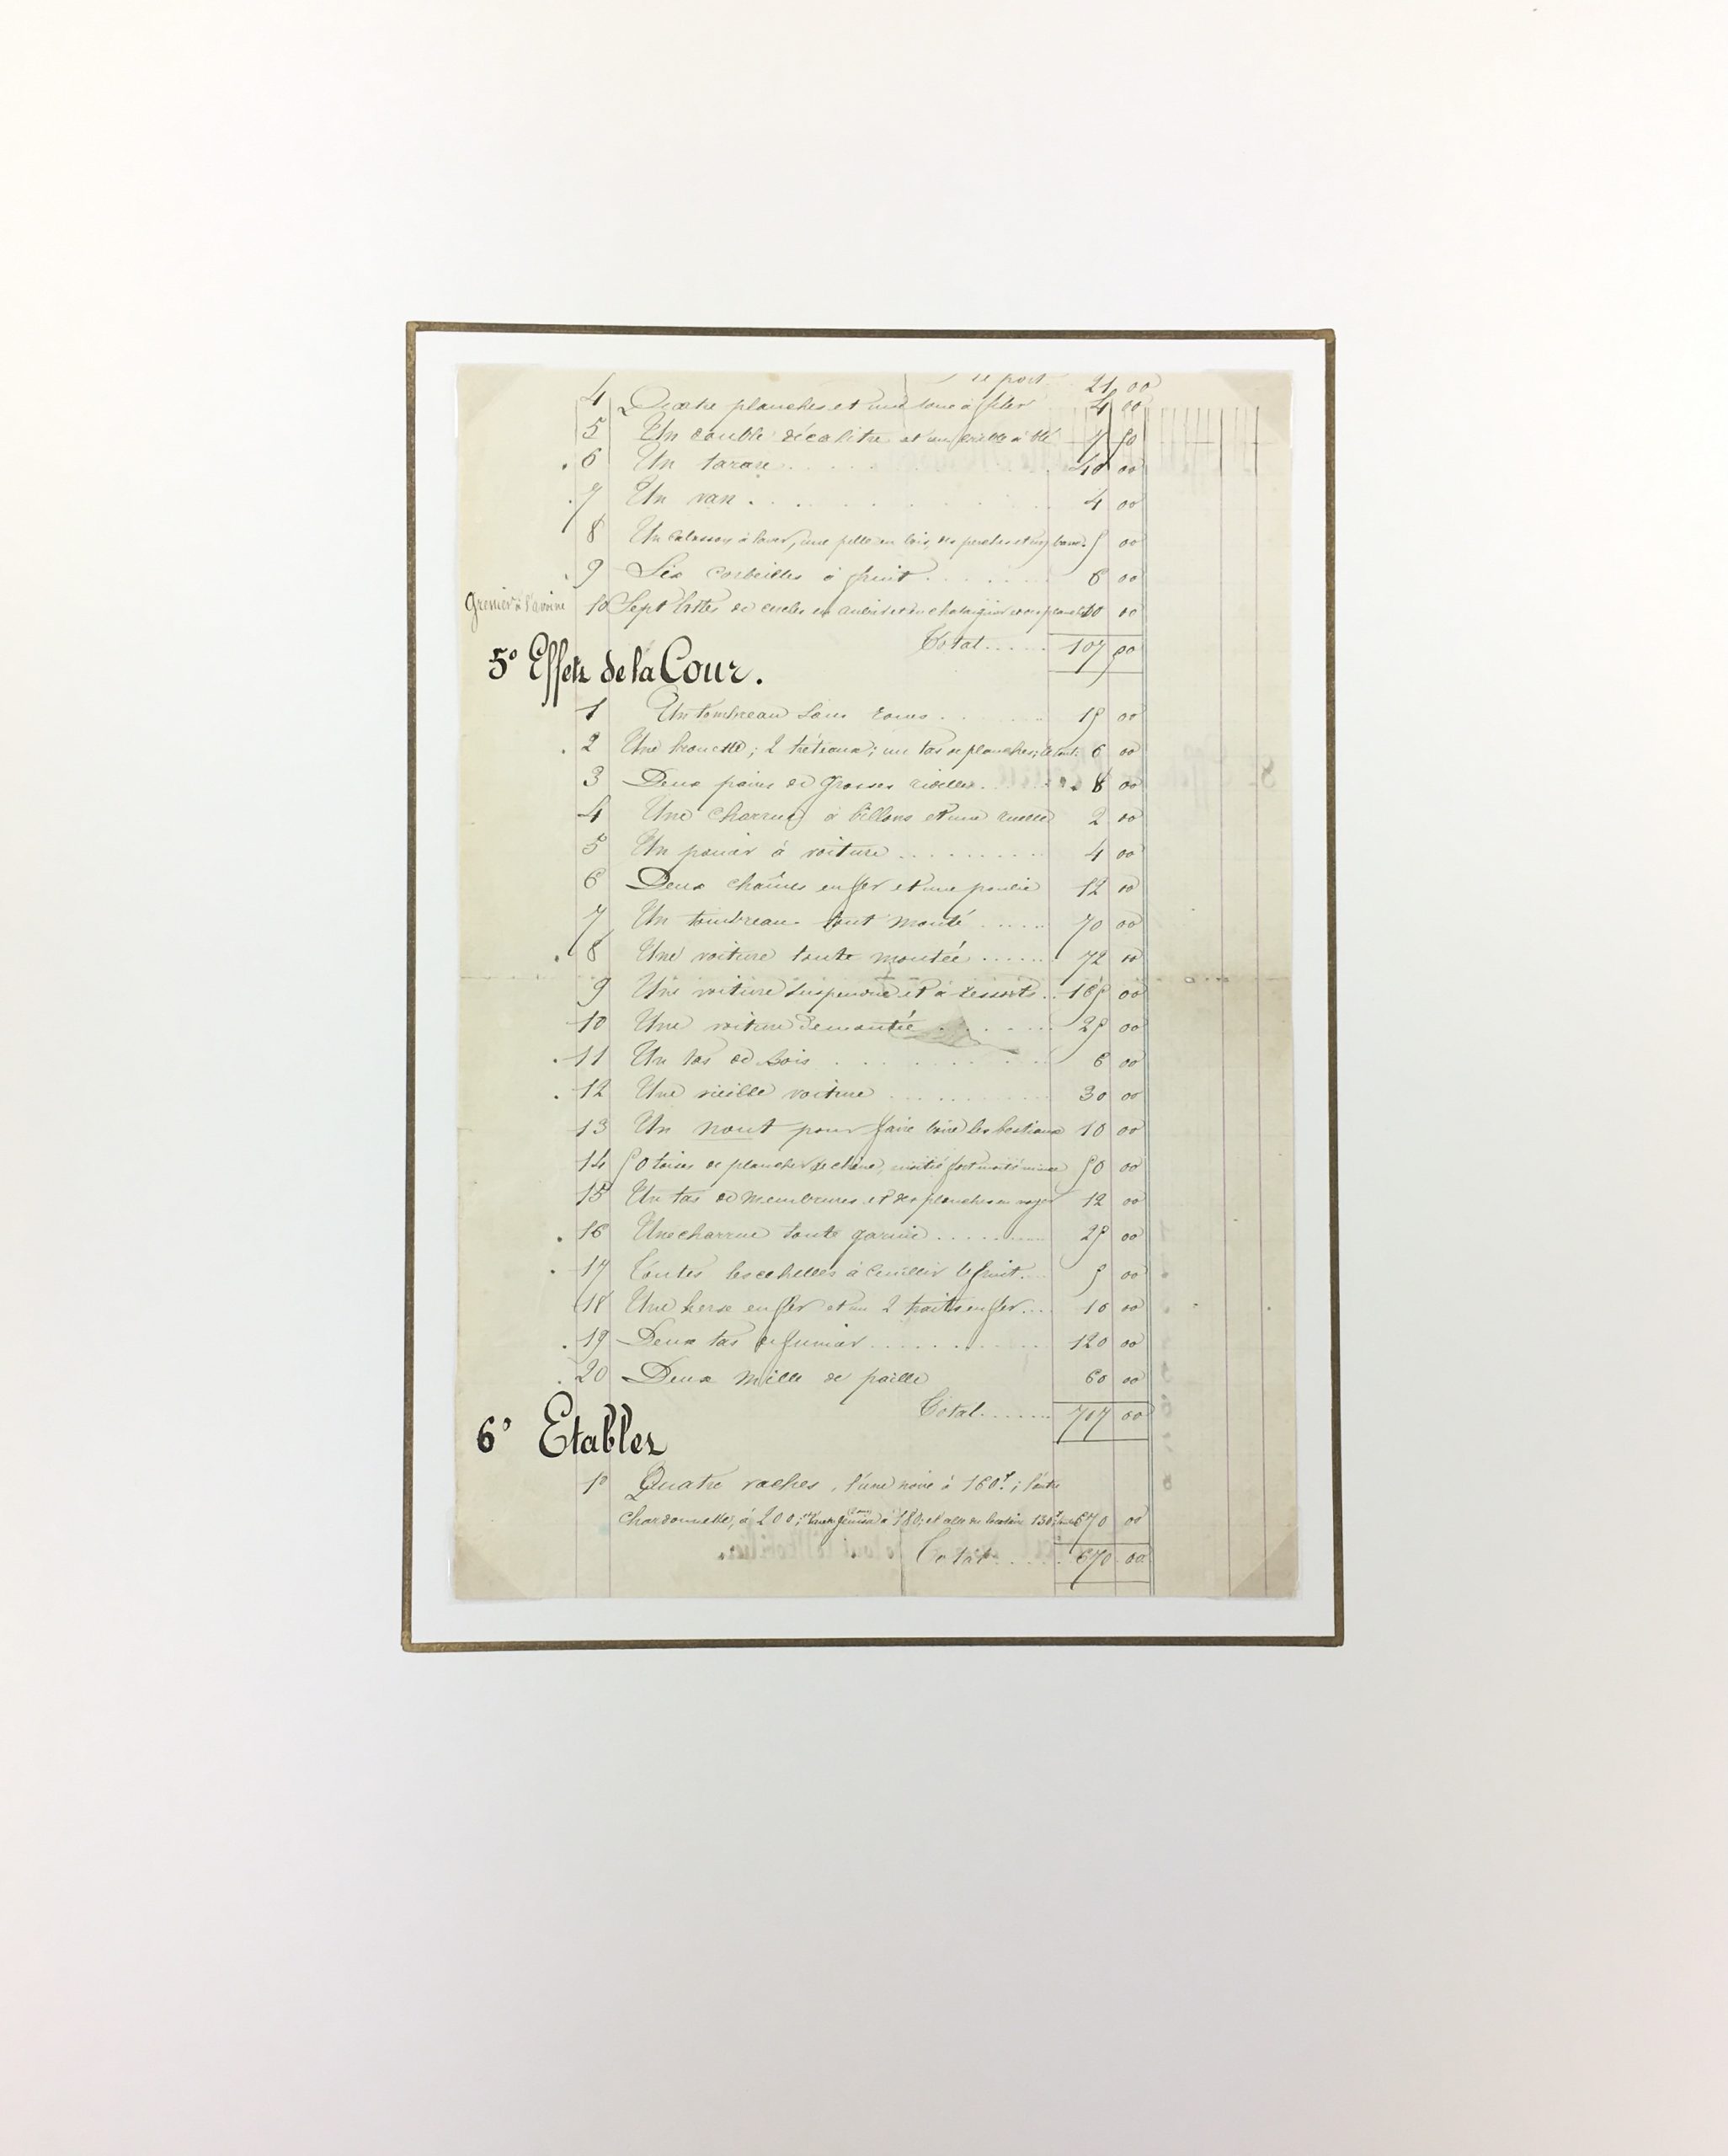 Report 21 00
4 Quatre planches et une roue à filer 4 00
5 Un double décalitre et un crible à blé 1 50
6 Un tarare 40 00
7 Un van 4 00
8 Un à laver, une pelle en bois, des perches et un banc. 5 00
9 Six corbeilles à fruit 6 00
Grenier à l'avoine 10 Sept bottes de cercles en et en 00
Total 107 50
5° Effets de la Cour.
1 Un tombreau sans roues 15 00
2 Une brouette ; 2 tréteaux ; un tas de planches ; le tout : 6 00
3 Deux paires de grosses ridelles 8 00
4 Une charrue à billons et une 2 00
5 Un panier à voiture 4 00
6 Deux chaînes en fer et une poulie 12 00
7 Un tombreau tout monté 70 00
8 Une voiture toute montée 72 00
9 Une voiture suspendue et à ressorts 165 00
10 Une voiture démontée 25 00
11 Un tas de bois 6 00
12 Une vieille voiture 30 00
13 Un nout pour faire boire les bestiaux 10 00
14 50 toises de plancher de chêne, moitié fort moitié mince 50 00
15 Un tas de membrures et des planches en noyer 12 00
16 Une charrue toute garnie 25 00
17 Toutes les echelles à cueillir le fruit 5 00
18 Une herse en fer et 2 traits en fer 10 00
19 Deux tas de fumier 120 00
20 Deux mille de paille 60 00
Total 707 00
6° Etables
1° Quatre vaches, l'une noire à 160f ; l'autre
chardonnette, à 200 ; à 180 ; et 130f 670 00
Total 670 00